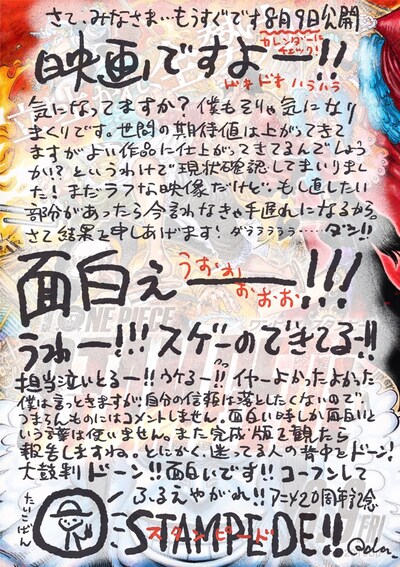 さて、みなさま…もうすぐです8月9日公開
カレンダーにチェック!
映画ですよー!!
ドキドキ ハラハラ
気になってますか?僕もそりゃ気になり
まくりです。世間の期待値は上がってきて
ますがよい作品に仕上がってきてるんでしょう
か!?というわけで現状確認してまいりまし
た!まだラフな映像だけど、もし直したい
部分があったら今言わなきゃ手遅れになるから。
さて結果を申しあげます!ダララララララ……ダン!!
面白ェーー!!!
うおおおおお
うわー!!!スゲーのできてるー!!
担当泣いとるー!!ウケるー!!イヤーよかったよかった
僕は言っときますが自分の信頼は落としたくないので
つまらんものにはコメントしません。面白い時しか面白いと
いう言葉は使いません。また完成版を観たら
報告しますね。とにかく、迷ってる人の背中をドーン!
太鼓判ドーン!!面白いです!!コーフンして
ふるえやがれ!!アニメ20周年記念
たいこばん
スタンピード
STAMPEDE!!